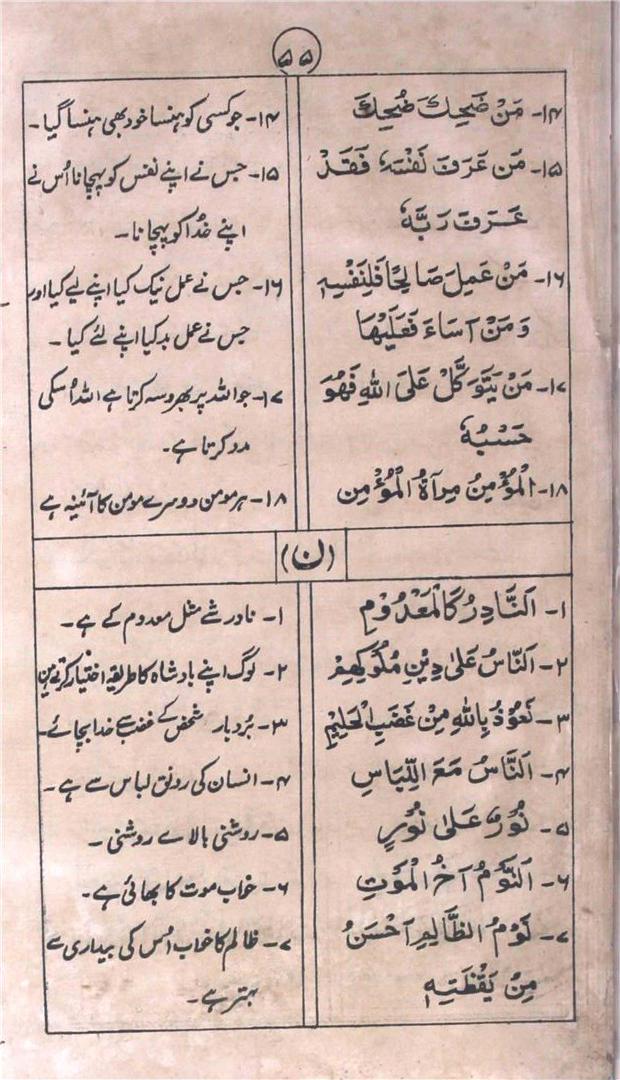 ۵۵
۱۴- مَنْ ضَحِكَ ضُحِكَ
۱۵- مَن عَرَفَ نَفْسَهٗ فَقَدْ
عَرَفَ رَبَّهٗ
۱۶- مَنْ عَمِلَ صَالِحًا فَلِنَفْسِهٖ
وَمَنْ اَسَاءَ فَعَلَيْهَا
۱۷- مَنْ يَتَوَكَّلْ عَلَى اللهِ فَهُوَ
حَسْبُهٗ
۱۸- اَلْمُؤْمِنُ مِرْآةُ الْمُؤْمِنِ
۱۴- جو کسی کو ہنسا خود بھی ہنسا گیا۔
۱۵- جس نے اپنے نفس کو پہچانا اُس نے
اپنے خُدا کو پہچانا۔
۱۶- جس نے عمل نیک کیا اپنے لیے کیا اور
جس نے عمل بد کیا اپنے لئے کیا۔
۱۷- جو اللہ پر بھروسہ کرتا ہے اللہ اُسکی
مدد کرتا ہے۔
۱۸- ہر مومن دوسرے مومن کا آئینہ ہے
(ن)
۱- اَلنَّادِرُ كَالْمَعْدُوْمِ
۲- اَلنَّاسُ عَلىٰ دِيْنِ مُلُوْكِهِمْ
۳- نَعُوْذُ بِاللهِ مِنْ غَضَبِ الْحَلِيْمِ
۴- اَلنَّاسُ مَعَ اللِّبَاسِ
۵- نُوْرٌ عَلىٰ نُوْرٍ
۶- اَلنَّوْمُ اَخُ الْمَوْتِ
۷- نَوْمُ الظَّالِمِ اَحْسَنُ
مِنْ يَقْظَتِهٖ
۱- نادر شے مثل معدوم کے ہے۔
۲- لوگ اپنے بادشاہ کا طریقہ اختیار کرتے ہیں
۳- بُردبار شخص کے غضب سے خدا بچائے۔
۴- انسان کی رونق لباس سے ہے۔
۵- روشنی بالاے روشنی۔
۶- خاب موت کا بھائی ہے۔
۷- ظالم کا خاب اُس کی بیداری سے
بہتر ہے۔